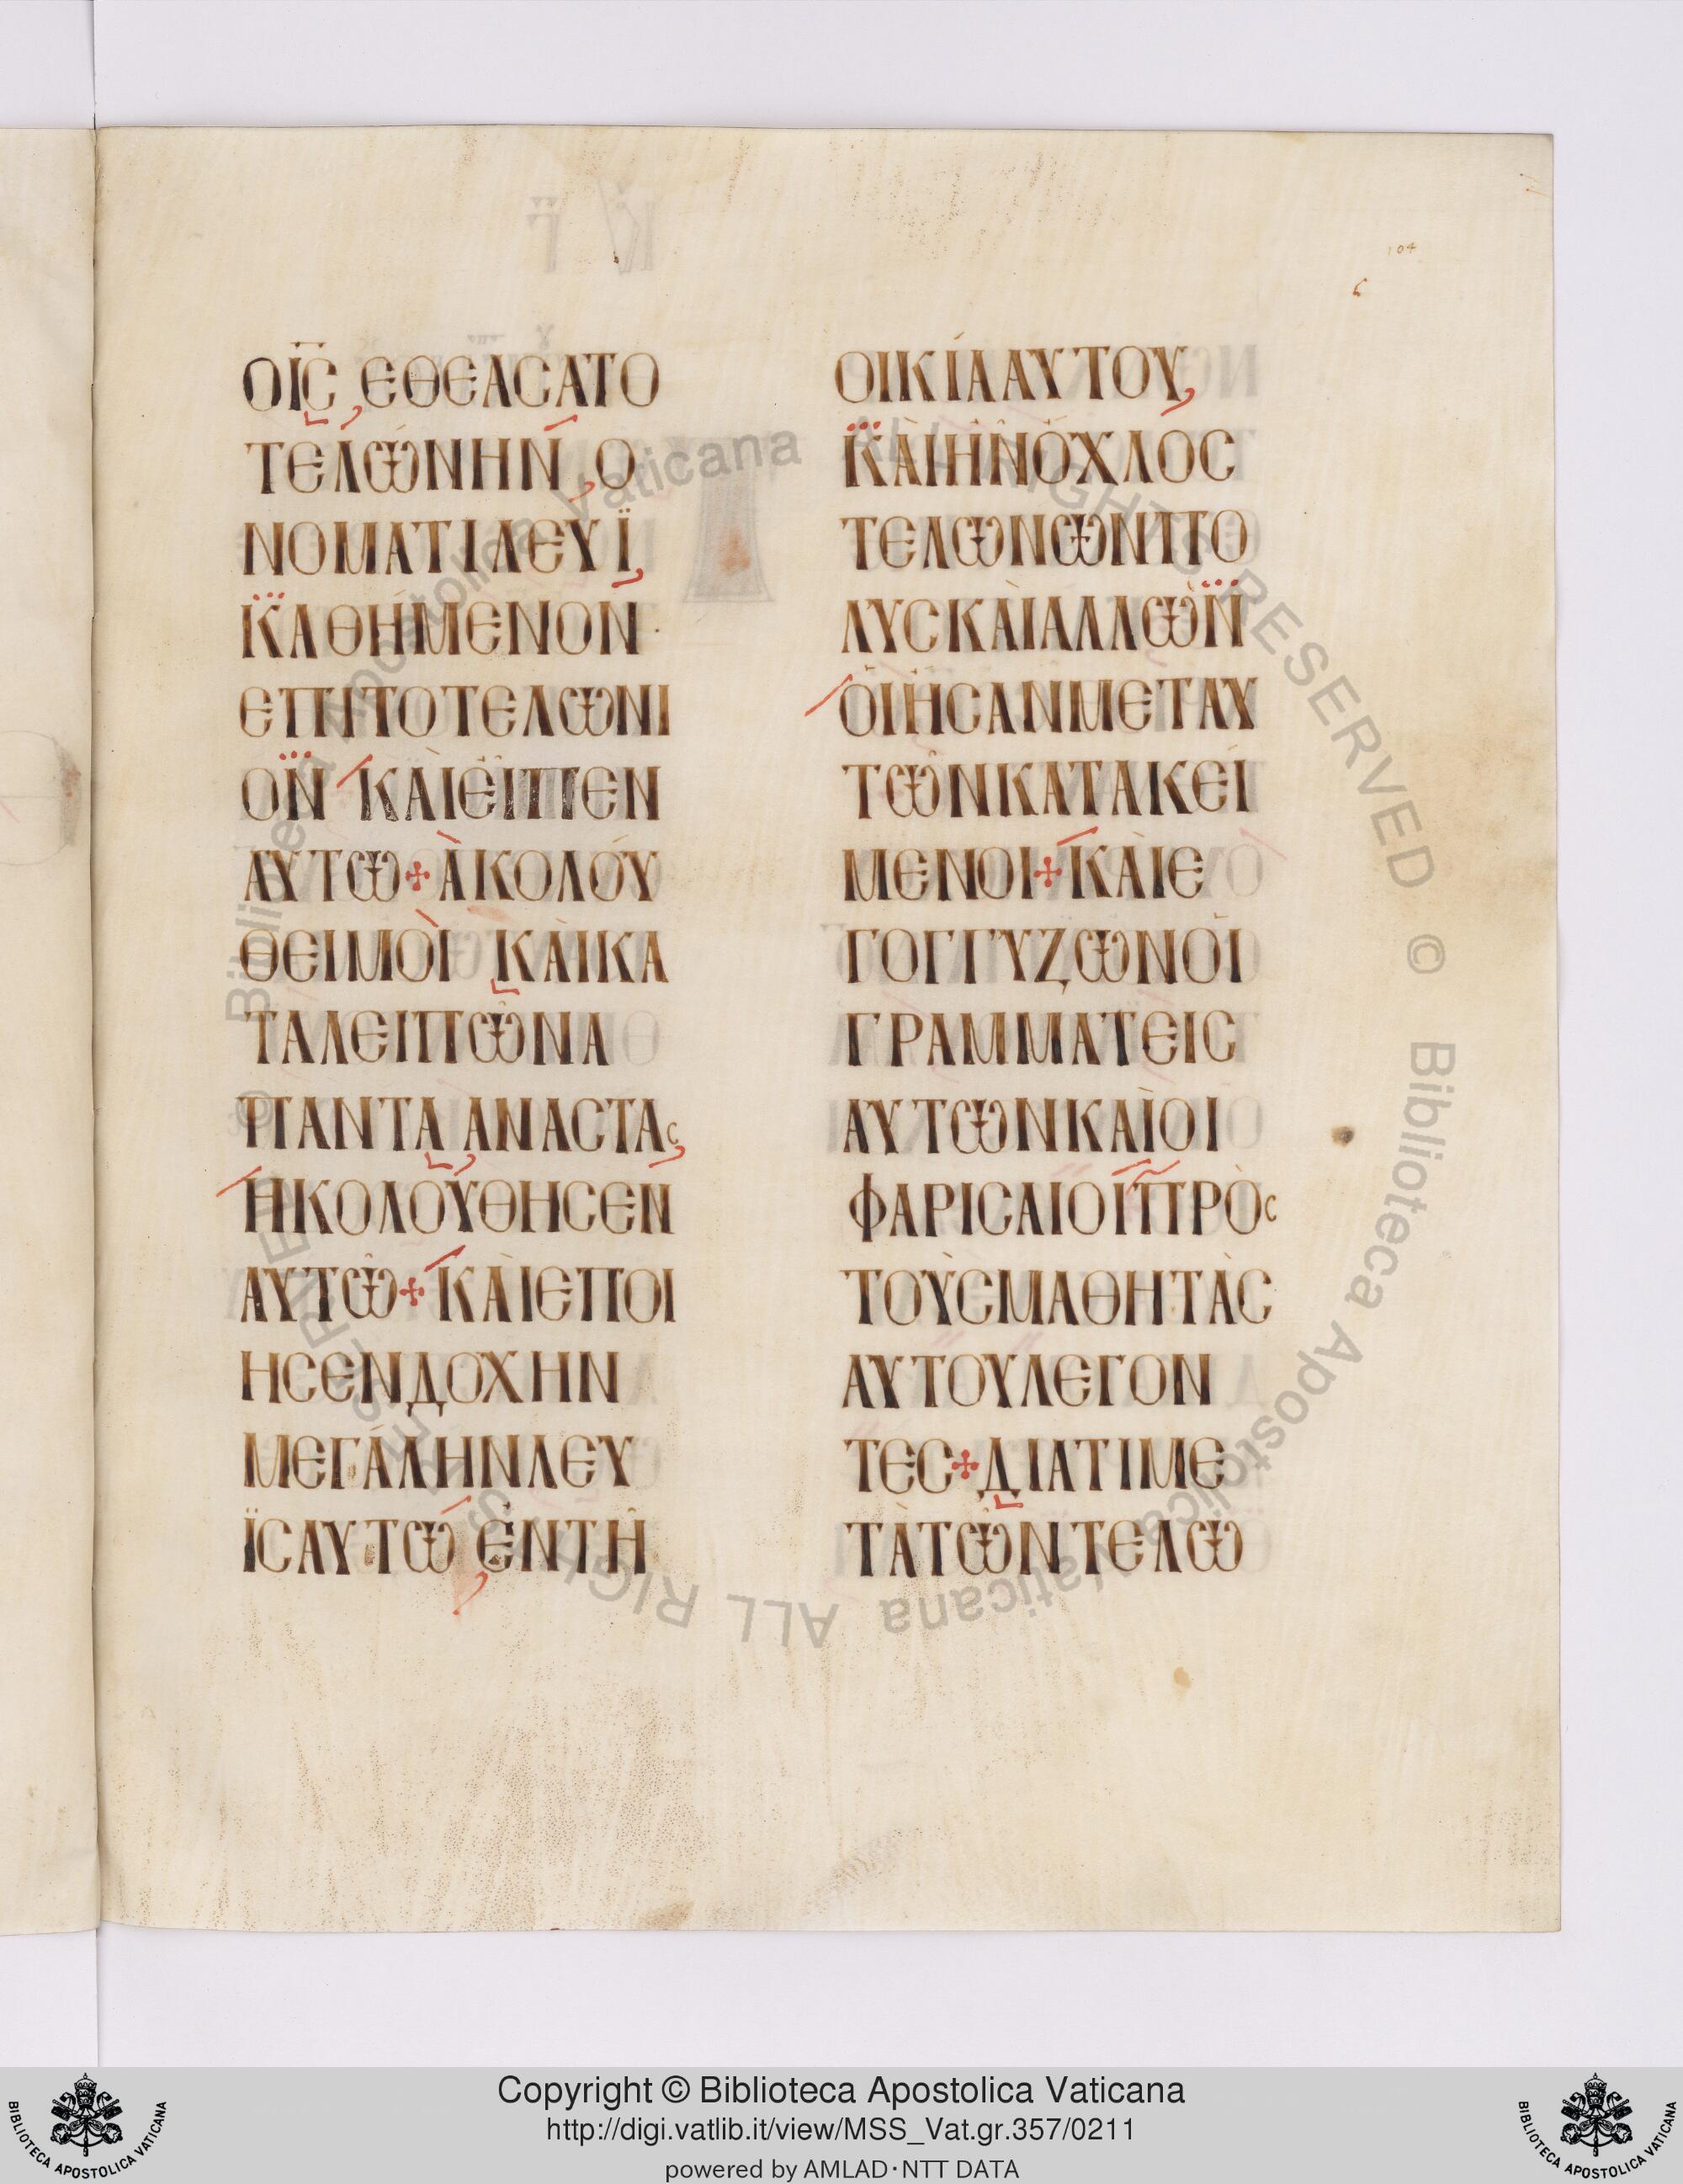 104
Ο ΙC ΕΘΕΑCΑΤΟ
ΤΕΛΩΝΗΝ Ο
ΝΟΜΑΤΙ ΛΕΥΪ
ΚΑΘΗΜΕΝΟΝ
ΕΠΙ ΤΟ ΤΕΛΩΝΙ
ΟΝ ΚΑΙ ΕΙΠΕΝ
ΑΥΤΩ + ΑΚΟΛΟΥ
ΘΕΙ ΜΟΙ ΚΑΙ ΚΑ
ΤΑΛΕΙΠΩΝ Α
ΠΑΝΤΑ ΑΝΑCΤΑC
ΗΚΟΛΟΥΘΗCΕΝ
ΑΥΤΩ + ΚΑΙ ΕΠΟΙ
ΗCΕΝ ΔΟΧΗΝ
ΜΕΓΑΛΗΝ ΛΕΥ
ΪC ΑΥΤΩ ΕΝ ΤΗ
ΟΙΚΙΑ ΑΥΤΟΥ
ΚΑΙ ΗΝ ΟΧΛΟC
ΤΕΛΩΝΩΝ ΠΟ
ΛΥC ΚΑΙ ΑΛΛΩΝ
ΟΙ ΗCΑΝ ΜΕΤ ΑΥ
ΤΩΝ ΚΑΤΑΚΕΙ
ΜΕΝΟΙ + ΚΑΙ Ε
ΓΟΓΓΥΖΩΝ ΟΙ
ΓΡΑΜΜΑΤΕΙC
ΑΥΤΩΝ ΚΑΙ ΟΙ
ΦΑΡΙCΑΙΟΙ ΠΡΟC
ΤΟΥC ΜΑΘΗΤΑC
ΑΥΤΟΥ ΛΕΓΟΝ
ΤΕC + ΔΙΑΤΙ ΜΕ
ΤΑ ΤΩΝ ΤΕΛΩ
© Biblioteca Apostolica Vaticana ALL RIGHTS RESERVED © Biblioteca Apostolica Vaticana ALL RIGHTS RESERVED
Copyright © Biblioteca Apostolica Vaticana
http://digi.vatlib.it/view/MSS_Vat.gr.357/0211
powered by AMLAD·NTT DATA
BIBLIOTECA APOSTOLICA VATICANA
BIBLIOTECA APOSTOLICA VATICANA